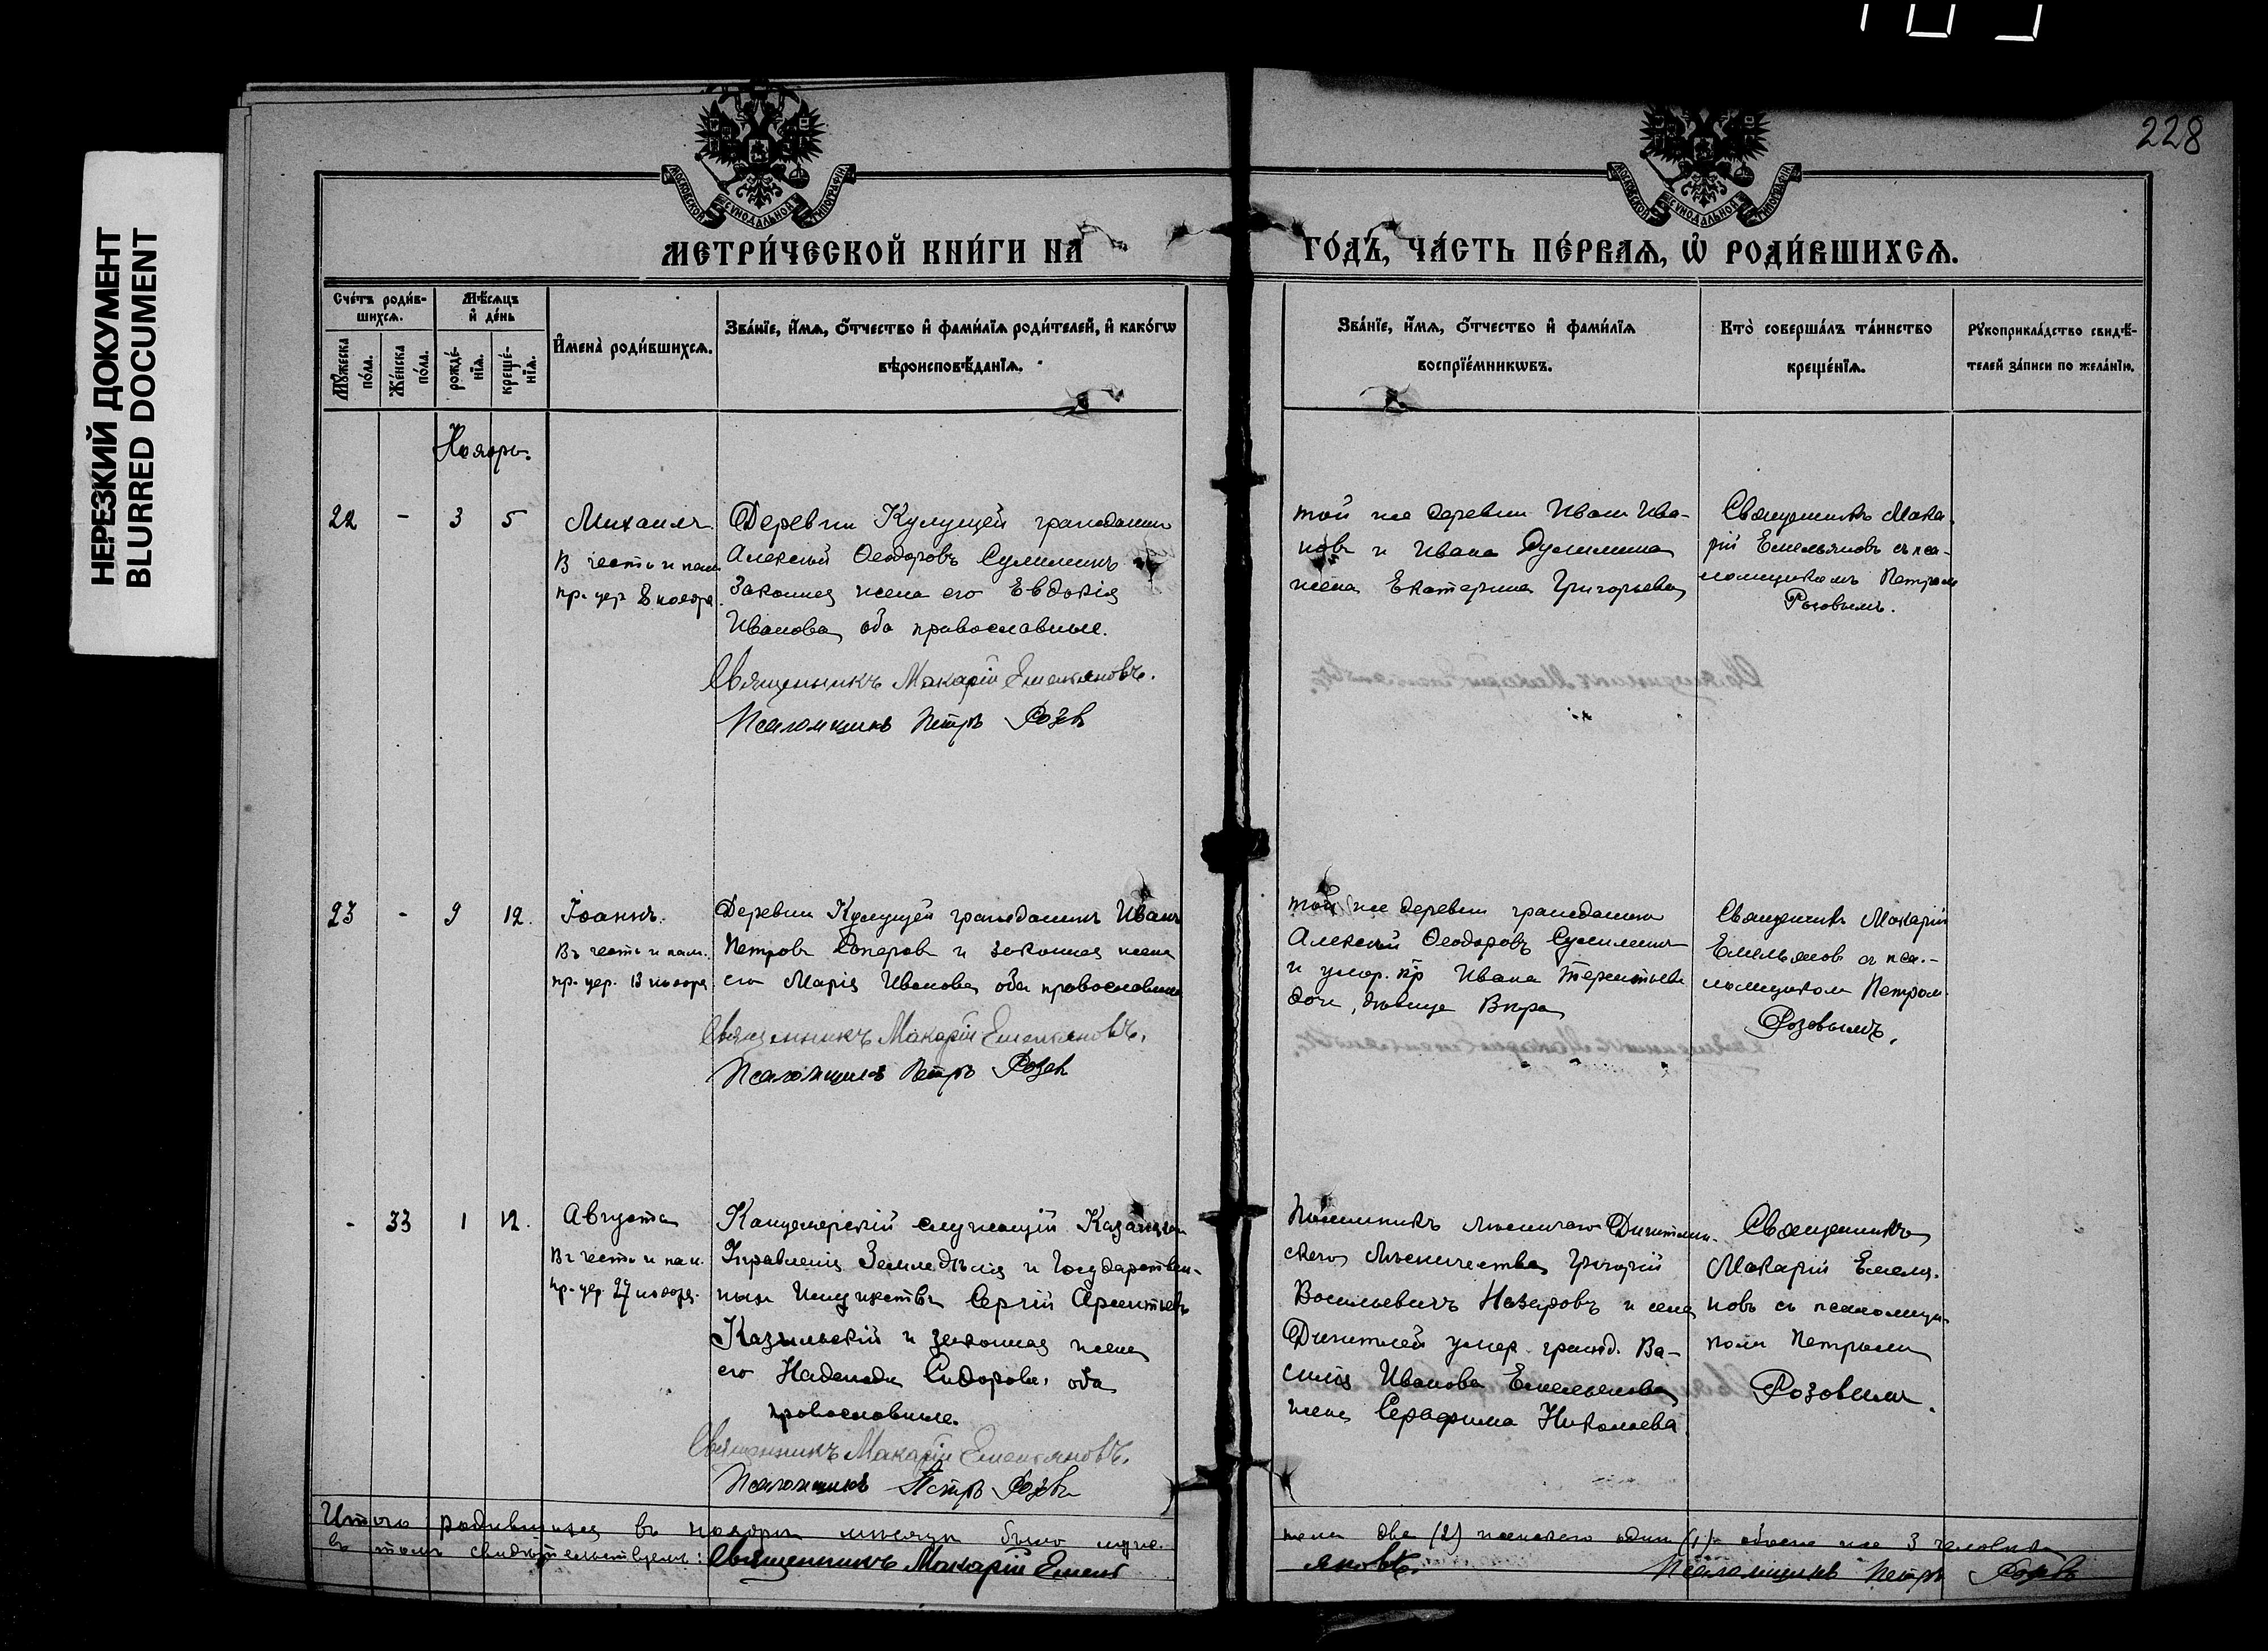 НЕРЕЗКИЙ ДОКУМЕНТ
BLURRED DOCUMENT
228
МОСКОВСКОЙ СѴНОДАЛЬНОЙ ТИПОГРАФІИ
МОСКОВСКОЙ СѴНОДАЛЬНОЙ ТИПОГРАФІИ
МЕТРИ́ЧЕСКОЙ КНИ́ГИ НА
ГО́ДЪ, ЧА́СТЬ ПЕ́РВАѦ, Ѡ҆ РОДИ́ВШИХСѦ.
Сче́тъ роди́в-
шихсѧ.
Мꙋ́жеска по́ла.
Же́нска по́ла.
Мѣ́сѧцъ
и҆ де́нь
рожде́-нїѧ.
креще́-нїѧ.
И҆мена̀ роди́вшихсѧ.
Зва́нїе, и҆́мѧ, ѻ҆́тчество и҆ фами́лїѧ роди́телей, и҆ како́гѡ
вѣроисповѣ́данїѧ.
Зва́нїе, и҆́мѧ, ѻ҆́тчество и҆ фами́лїѧ
воспрїе́мникѡвъ.
Кто̀ соверша́лъ та́инство
креще́нїѧ.
Рꙋкоприкла́дство свидѣ́-
телей за́писи по жела́нїю.
Ноябрь.
22 - 3 5
Михаилъ.
В честь и пам.
пр. цер. 8 ноября.
Деревни Кулущей гражданин
Алексѣй Ѳеодоровъ
Законная жена его Евдокія
Иванова, оба православные.
Священникъ Макарій Емельяновъ.
Псаломщикъ Петръ Розовъ
той же деревни Иван Ива-
нов и Ивана
жена Екатерина Григорьева
Священникъ Мака-
рій Емельяновъ съ пса-
ломщикомъ Петром
Розовымъ.
23 - 9 12.
Іоаннъ.
Въ честь и пам.
пр. цер. 13 ноября
Деревни Кулущей гражданинъ Иванъ
Петровъ и законная жена
его Марія Иванова, оба православные
Священникъ Макарій Емельяновъ.
Псаломщикъ Петръ Розовъ
той же деревни гражданин
Алексѣй Ѳеодоровъ
и умер. гр. Ивана Терентьева
дочь, дѣвица Вѣра
Священникъ Макарій
Емельянов съ пса-
ломщиком Петром
Розовымъ.
- 33 1 12.
Августа
Въ честь и пам.
пр. цер. 27 ноября.
Канцелярскій служащій Казанскаго
Управленія Земледѣлія и Государствен-
ных Имуществъ Сергій Арсентьевъ
и законная жена
его Надежда Сидорова, оба
православные.
Священникъ Макарій Емельяновъ.
Псаломщикъ Петръ Розовъ
лѣсничаго
лѣсничества Григорій
Васильевичъ Назаровъ и села
умер. гражд. Ва-
силія Иванова Емельянова
жена Серафима Николаева
Священникъ
Макарій Емелья-
новъ съ псаломщи-
ком Петромъ
Розовым.
Итого родившихся въ ноябрѣ мѣсяцѣ было муже-
ска два (2) женскаго один (1) а обоего пола 3 человѣка
въ томъ свидѣтельствуемъ: Священникъ Макарій Емель
яновъ.
Псаломщикъ Петръ Розовъ